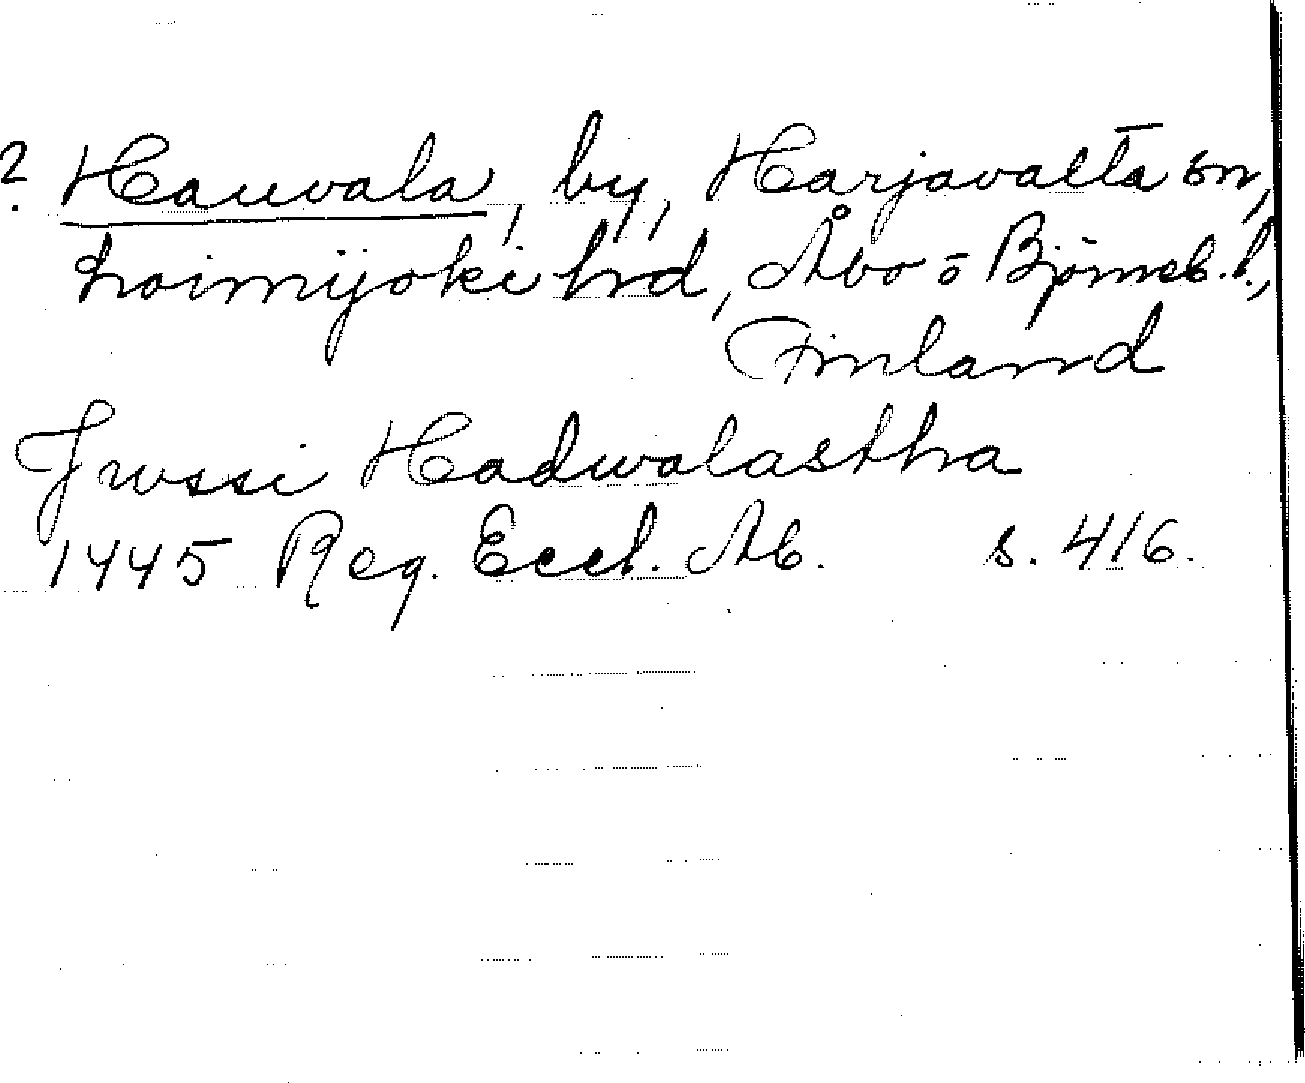 ? Hauvala, by, Harjavalta sn,
Loimijoki hrd, Åbo o Björneb. l.,
Finland
Jwssi Hadwalastha
1445 Reg. Eccl. Ab. s. 416.